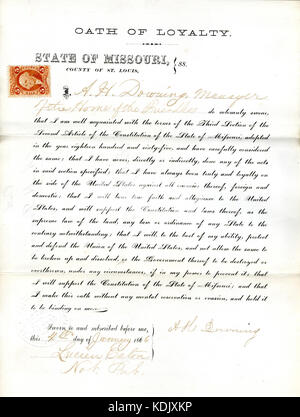 OATH OF LOYALTY.
STATE OF MISSOURI,
COUNTY OF ST. LOUIS,
SS.
I, A. H. Downing, Manager
of the Home of the Friendless do solemnly swear,
that I am well acquainted with the terms of the Third Section of the
Second Article of the Constitution of the State of Missouri, adopted
in the year eighteen hundred and sixty-five, and have carefully considered
the same; that I have never, directly or indirectly, done any of the acts
in said section specified; that I have always been truly and loyally on
the side of the United States against all enemies thereof, foreign and
domestic; that I will bear true faith and allegiance to the United
States, and will support the Constitution and laws thereof, as the
supreme law of the land, any law or ordinance of any State to the
contrary notwithstanding; that I will, to the best of my ability, protect
and defend the Union of the United States, and not allow the same
to be broken up and dissolved, or the Government thereof to be destroyed or
overthrown, under any circumstances, if in my power to prevent it; that
I will support the Constitution of the State of Missouri; and that
I make this oath without any mental reservation or evasion, and hold it
to be binding on me.
A. H. Downing
Sworn to and subscribed before me,
this day of January 1866
Lucien Eaton
Not. Pub.
alamy